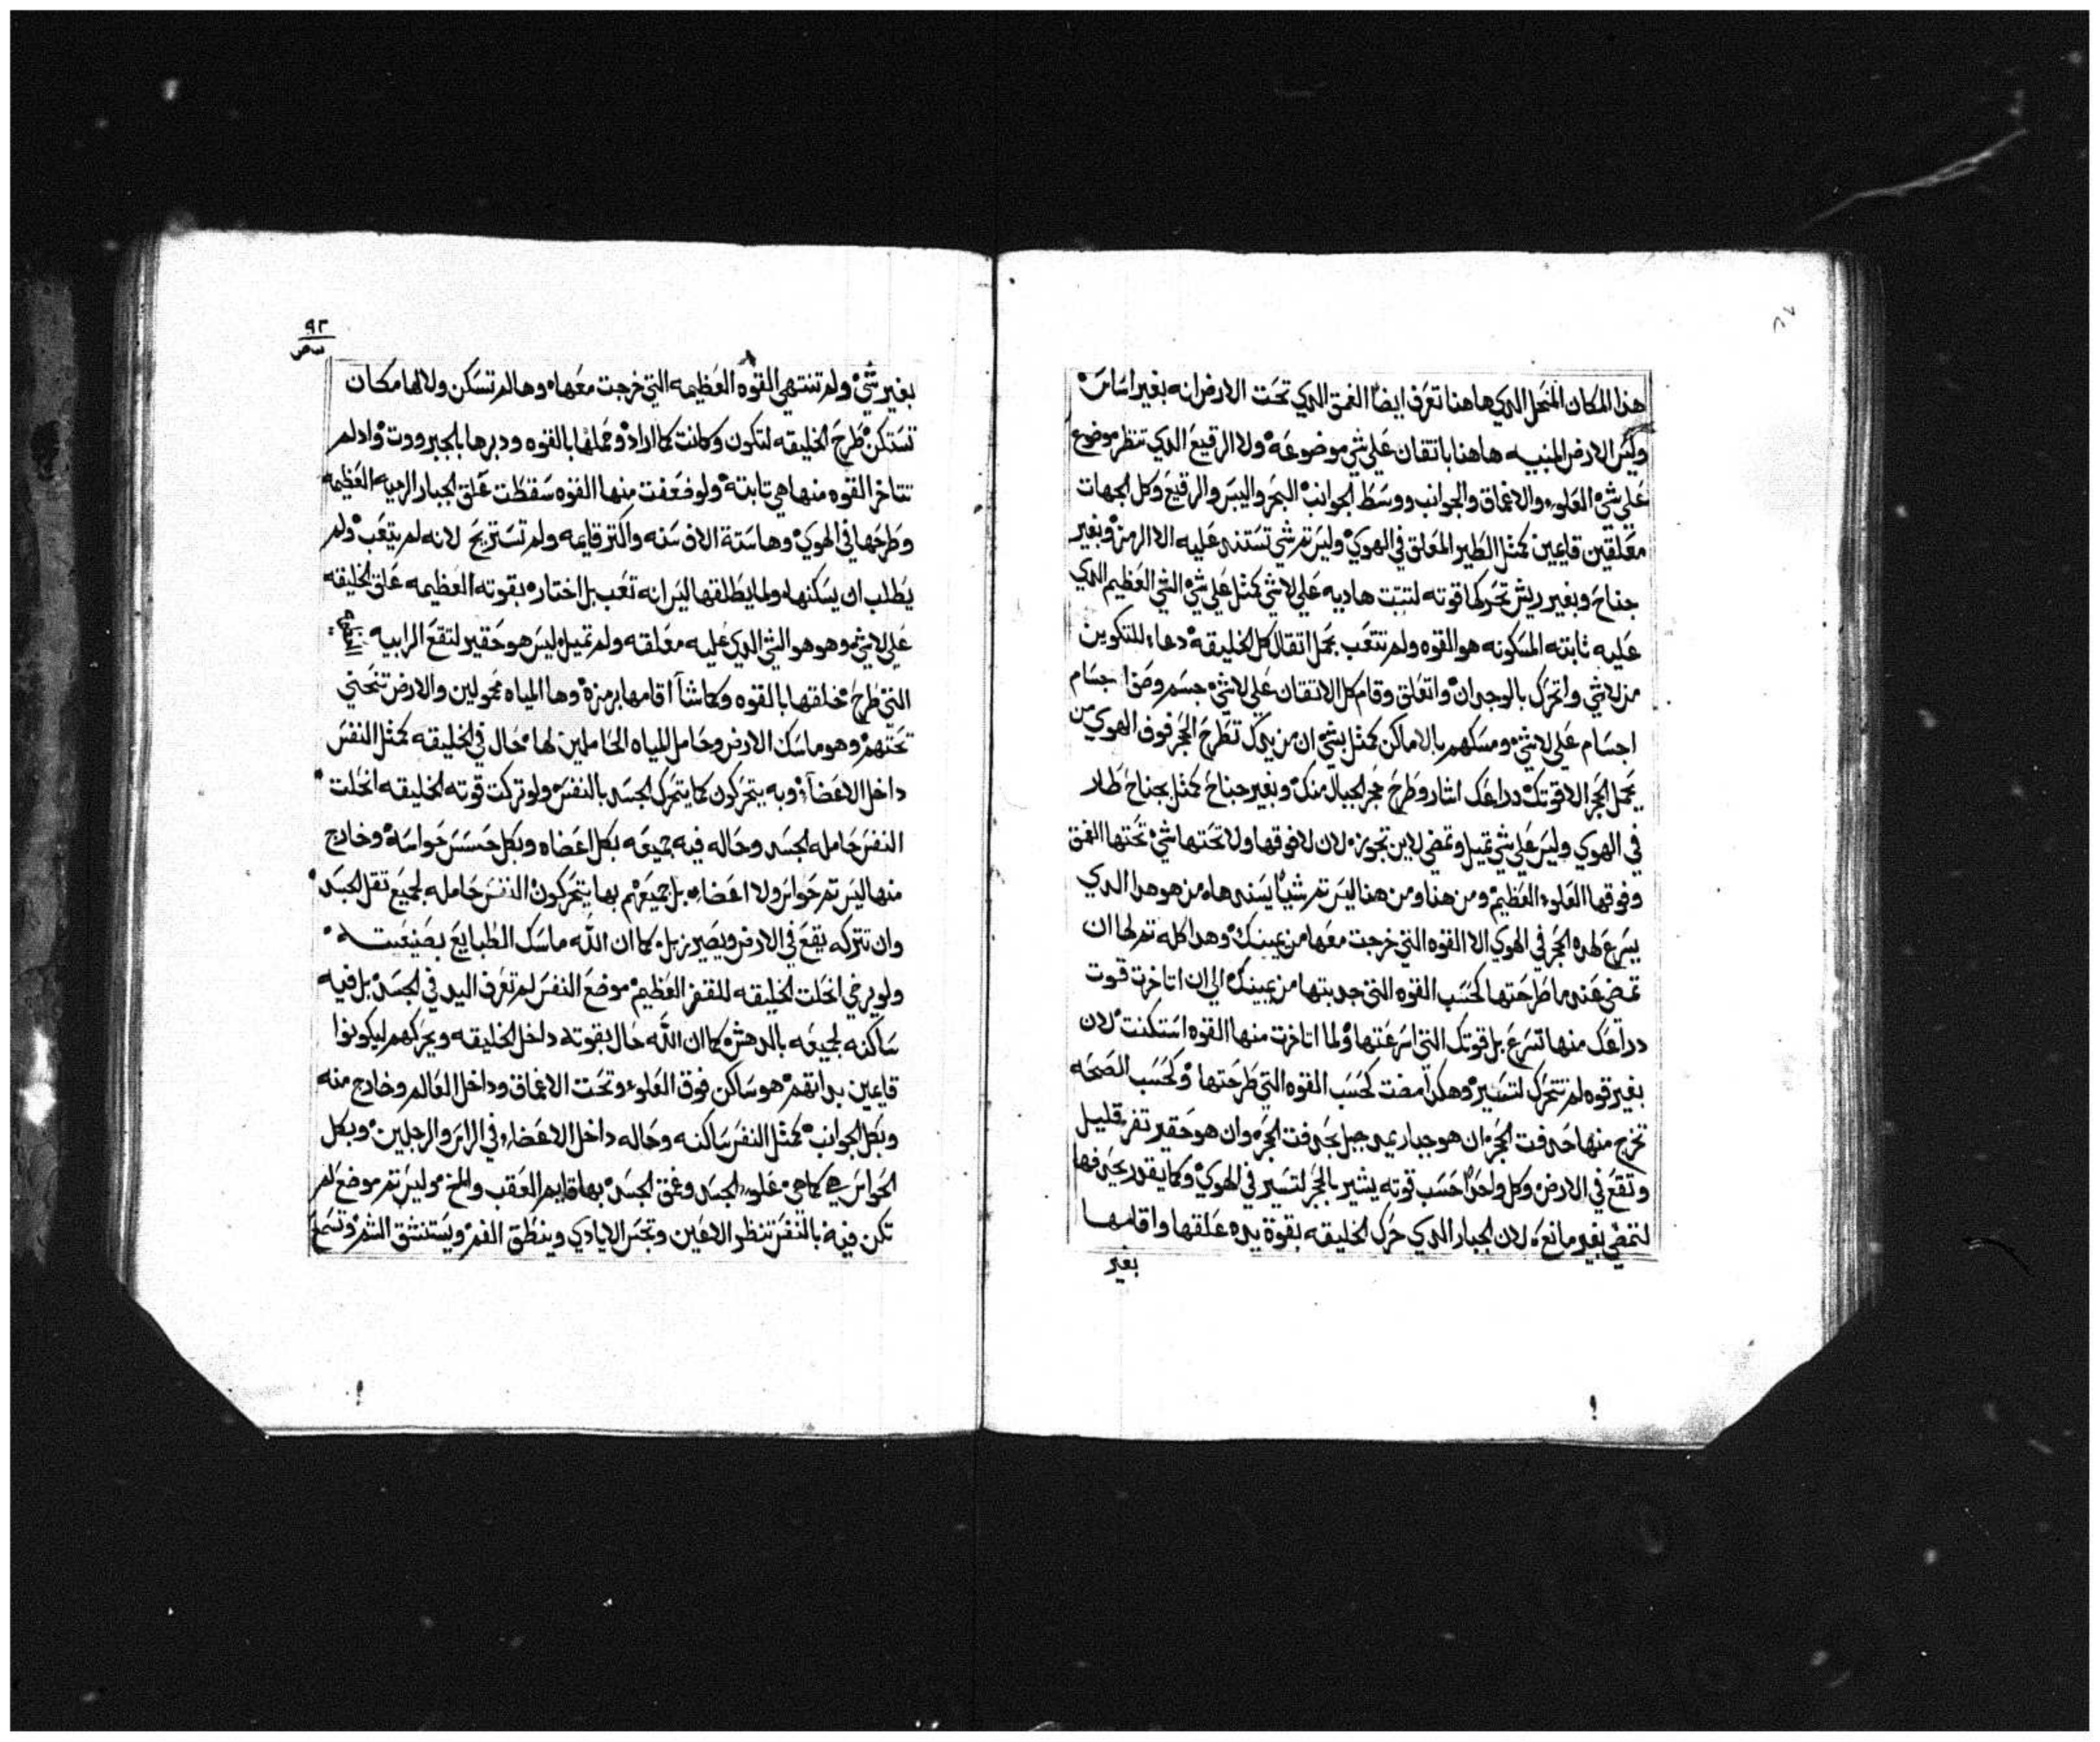 هذا المكان المنحل الدي هاهنا تعرف ايضاً الغمق الدي تحت الارض انه بغير اساس
وليس الارض المنبيه هاهنا باتقان علي شي موضوعه ولا الرقيع الدي تنظر موضوع
علي شي العلو والاعماق والجوانب ووسط الجوانب البحر واليبس والرقيع وكل الجهات
معلقين قايمين كمثل الطير المعلق في الهوي وليس تم شي تستند عليه الا الرمز وبغير
جناح وبغير ريش تحركها قوته لتبت هاديه علي لاشي كمثل علي شي الشي العظيم الدي
عليه ثابته المسكونه هو القوه ولم تتعب بحمل اتقال كل الخليقه دعا للتكوين
من لاشي واتحرك بالوجدان واتعلق وقام كل الاتقان علي لاشي جسم وضم اجسام
اجسام علي لاشي ومسكهم بالاماكن كمثل بشي ان من يدك تطرح الحجر فوق الهوي من
يحمل الحجر الا قوتك دراعك اشار وطرح حجر الجبال منك وبغير جناح كمثل بجناح طار
في الهوي وليس علي شي تميل وتمضي لاين تجوزه لان لا فوقها ولا تحتها شي تحتها الغمق
وفوقها العلو العظيم ومن هنا ومن هنا ليس تم شياً يسندها من هو هدا الدي
يسرع لهده الحجر في الهوي الا القوه التي خرجت معها من يمينك وهدا كله تم لها ان
تمضي عند ما طرحتها كحسب القوه التي جدبتها من يمينك الي ان اتاخرت قوت
دراعك منها تسرع بل قوتك التي اسرعتها ولما اتاخرت منها القوه استكنت لان
بغير قوه لم تتحرك لتسير وهكدا مضت كحسب القوه التي طرحتها وكحسب الصحه
تخرج منها حدفت الحجر ان هو جبار يمد جبل بحدفت الحجره وان هو حقير تفر قليل
وتقع في الارض وكل واحداً حسب قوته يشير بالحجر لتسير في الهوي وكما يقدر يحدفها
لتمضي بغير مانع لان الجبار الدي حرك الخليقه بقوة يده علقها واقامها
بغير
٩٢
بغير شي ولم تنتهي القوه العظيمه التي خرجت معها وها لم تسكن ولا لها مكان
تستكن طرح الخليقه لتكون وكانت كما اراد وحملها بالقوه ودبرها بالجبروت وادلم
تتاخر القوه منها هي تابته ولو ضعفت منها القوه سقطت علق الجبار الرميه العظيمه
وطرحها في الهوي وها ستة الاف سنه واكتر قايمه ولم تستريح لانه لم يتعب ولم
يطلب ان يسكنها ولما يطلقها ليس انه تعب بل اختاره بقوته العظيمه علق الخليقه
علي لاشي وهو هو الشي الدي عليه معلقه ولم تميل ليس هو حقير لتقع الرابيه
التي طرح خلقها بالقوه وكما شآ اقامها برمزه وها المياه محمولين والارض تنحني
تحتهم وهو ماسك الارض وحامل المياه الحاملين لها حال في الخليقه كمثل النفس
داخل الاعضآ وبه يتحركون كما يتحرك الجسد بالنفس ولو تركت قوته الخليقه انحلت
النفس حامله الجسد وحاله فيه جميعه بكل اعضاه وبكل حسس حواسه وخارج
منها ليس تم حواس ولا اعضا بل جميعهم بها يتحركون النفس حامله لجميع تقل الجسد
وان تتركه يقع في الارض ويصير زبل كما ان الله ماسك الطبايع بصنيعته
ولو يرخي انحلت الخليقه للقفر العظيم موضع النفس لم تعرف اليد في الجسد بل فيه
ساكنه لجميعه بالدهش كما ان الله حال بقوته داخل الخليقه ويحركهم ليكونوا
قايمين بداتهم هو ساكن فوق العلو وتحت الاعماق وداخل العالم وخارج منه
وبكل الجوانب كمثل النفس ساكنه وحاله داخل الاعضا في الراس والرجلين وبكل
الحواس هي كما هي علو الجسد وغمق الجسد بها قايم العقب والمخ وليس تم موضع لم
تكن فيه بالنفس تنظر الاعين وتجس الايادي وينطق الفم ويستنشق الشم وتسمع